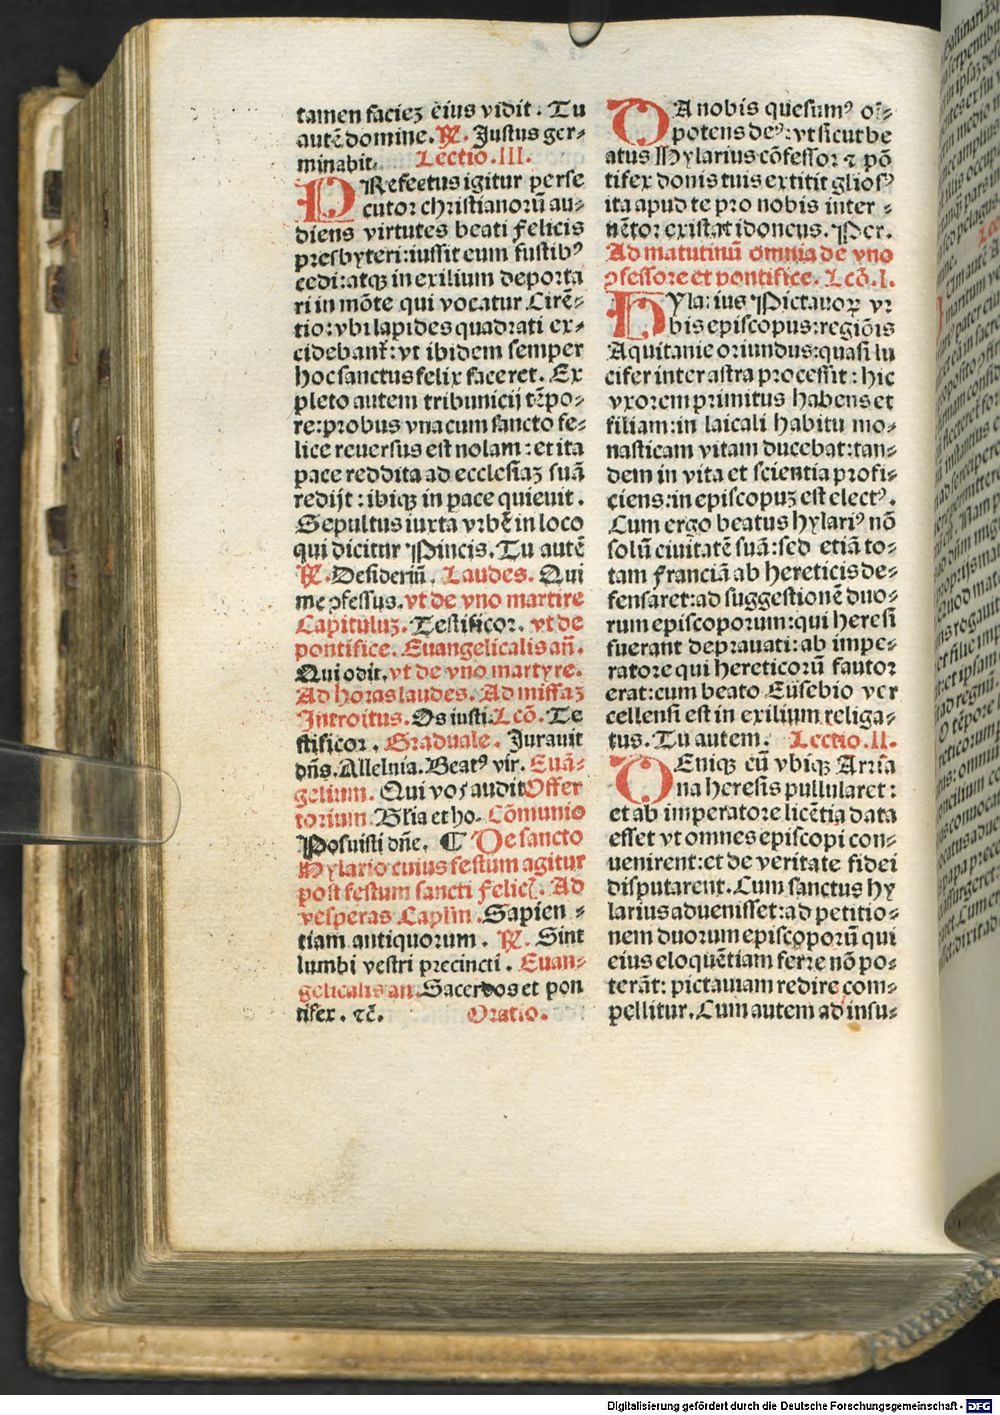 tamen faciez eius vidit. Tu
autē domine. ℟. Justus ger⸗
minabit. Lectio .III.
PRefectus igitur perse
cutor christianorū au⸗
diens virtutes beati felicis
presbyteri: iussit eum fustib⁹
cedi: atqz in exilium deporta
ri in mōte qui vocatur Circē⸗
tio: vbi lapides quadrati ex⸗
cidebant̄: vt ibidem semper
hoc sanctus felix faceret. Ex
pleto autem tribunicij tēpo⸗
re: probus vna cum sancto fe⸗
lice reuersus est nolam: et ita
pace reddita ad ecclesiaz suā
redijt: ibiqz in pace quieuit.
Sepultus iuxta vrbē in loco
qui dicitur Pincis. Tu autē
℟. Desideriū. Laudes. Qui
me ꝓfessus. vt de vno martire
Capituluz. Testificor. vt de
pontifice. Euangelicalis añ.
Qui odit. vt de vno martyre.
Ad horas laudes. Ad missaz
Introitus. Os iusti. Lcō. Te
stificor. Graduale. Jurauit
dñs. Alleluia. Beat⁹ vir. Euā⸗
gelium. Qui vos audit Offer
torium. Glia et ho. Cōmunio
Posuisti dñe. ¶ De sancto
Hylario cuius festum agitur
post festum sancti felic̄. Ad
vesperas Caplm̄. Sapien⸗
tiam antiquorum. ℟. Sint
lumbi vestri precincti. Euan⸗
gelicalis an. Sacerdos et pon
tifex. ⁊c̄. Oratio.
DA nobis quesum⁹ oī⸗
potens de⁹: vt sicut be
atus Hylarius cōfessor ⁊ pō
tifex donis tuis extitit glios⁹
ita apud te pro nobis inter⸗
uētor existat idoneus. Per.
Ad matutinū omnia de vno
ꝓfessore et pontifice. Lcō. I.
HYlarius Pictauoꝝ vr
bis episcopus: regiōis
Aquitanie oriundus: quasi lu
cifer inter astra processit: hic
vxorem primitus habens et
filiam: in laicali habitu mo⸗
nasticam vitam ducebat: tan⸗
dem in vita et scientia profi⸗
ciens: in episcopuz est elect⁹.
Cum ergo beatus hylari⁹ nō
solū ciuitatē suā: sed etiā to⸗
tam franciā ab hereticis de⸗
fensaret: ad suggestionē duo⸗
rum episcoporum: qui heresi
fuerant deprauati: ab impe⸗
ratore qui hereticorū fautor
erat: cum beato Eusebio ver
cellensi est in exilium religa⸗
tus. Tu autem. Lectio. II.
DEniqz cū vbiqz Arria
na heresis pullularet:
et ab imperatore licētia data
esset vt omnes episcopi con⸗
uenirent: et de veritate fidei
disputarent. Cum sanctus hy
larius aduenisset: ad petitio⸗
nem duorum episcoporū qui
eius eloquētiam ferre nō po⸗
terāt: pictauiam redire com⸗
pellitur. Cum autem ad insu⸗
Digitalisierung gefördert durch die Deutsche Forschungsgemeinschaft - DFG